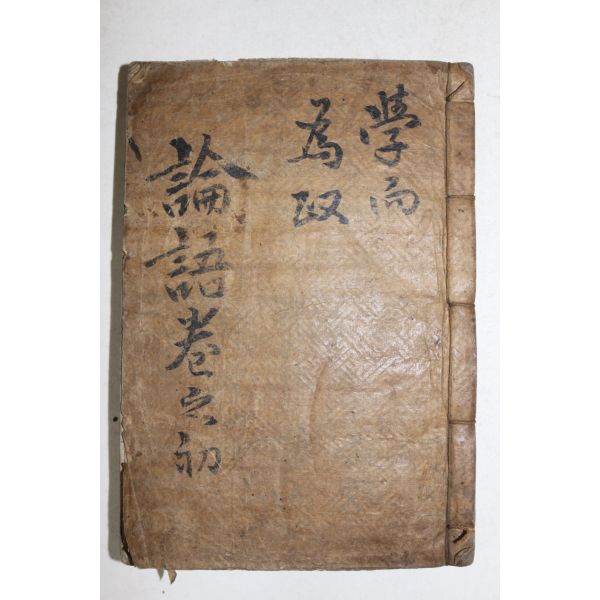 學而
為政
論語卷之初